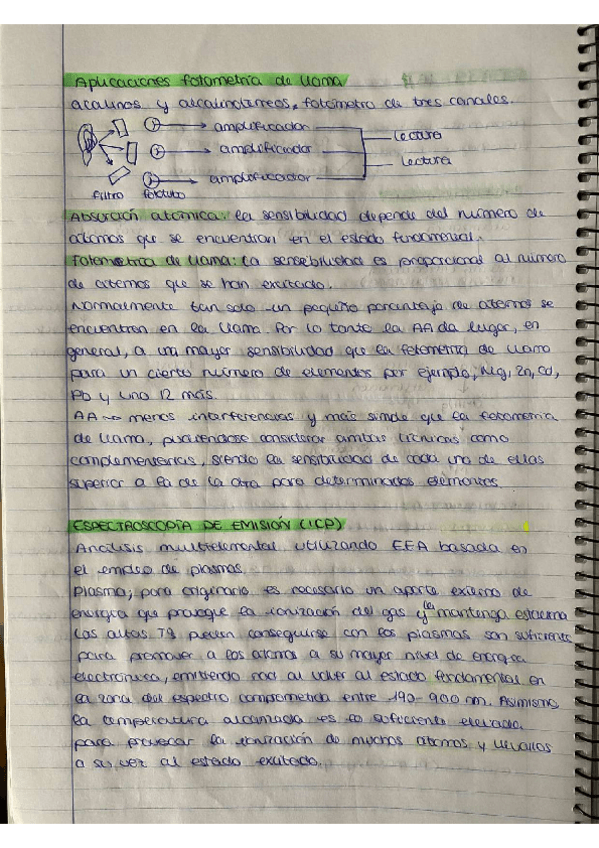 Aplicaciones fotometría de llama
alcalinos y alcalinotérreos, fotómetro de tres canales.
amplificador
lectura
amplificador
lectura
amplificador
filtro fototubo
Absorción atómica: la sensibilidad depende del número de
átomos que se encuentran en el estado fundamental.
Fotometría de llama: la sensibilidad es proporcional al número
de átomos que se han excitado.
Normalmente tan solo un pequeño porcentaje de átomos se
encuentran en la llama. Por lo tanto la AA da lugar, en
general, a una mayor sensibilidad que la fotometría de llama
para un cierto número de elementos por ejemplo; Mg, Zn, Cd,
Pb y uno 12 más.
AA → menos interferencias y más simple que la fotometría
de llama, pudiéndose considerar ambas técnicas como
complementarias, siendo la sensibilidad de cada una de ellas
superior a la de la otra para determinados elementos.
ESPECTROSCOPÍA DE EMISIÓN (ICP)
Análisis multielemental utilizando EEA basada en
el empleo de plasmas.
Plasma; para originarlo es necesario un aporte externo de
energía que provoque la ionización del gas y la mantenga estacionaria
Las altas Tª pueden conseguirse con los plasmas son suficientes
para promover a los átomos a su mayor nivel de energía
electrónica, emitiendo rad al volver al estado fundamental en
la zona del espectro comprometida entre 190-900 nm. Asimismo
la temperatura alcanzada es lo suficiente elevada
para provocar la ionización de muchos átomos y llevarlos
a su vez al estado excitado.